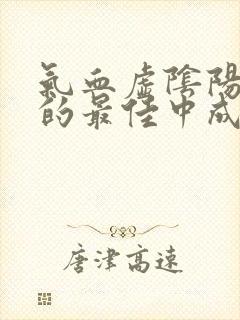 氣血虛陰陽
的最佳中成
唐津高速